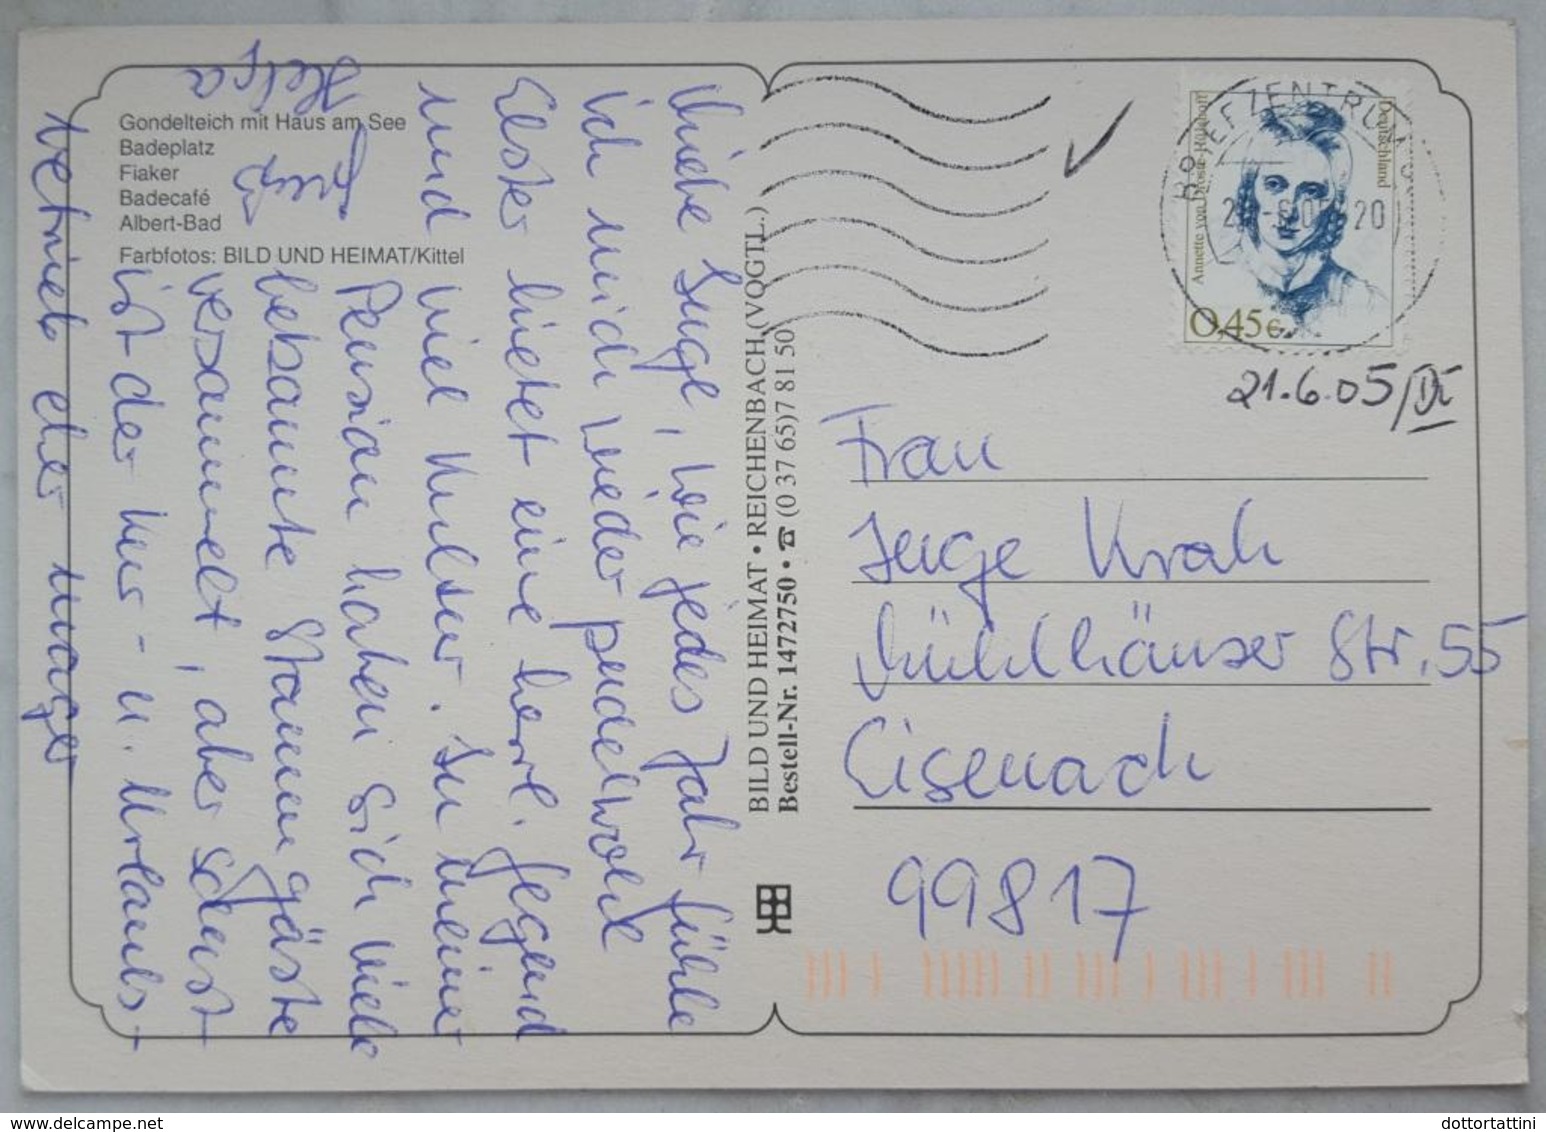 Gondelteich mit Haus am See
Badeplatz
Fiaker
Badecafé
Albert-Bad
Farbfotos: BILD UND HEIMAT/Kittel
Liebe Inge, wie jedes Jahr fühle
ich mich wieder pudelwohl
Elster bietet eine herrl. Gegend
und viel Kultur. In meiner
Pension haben sich viele
bekannte Stammgäste
versammelt, aber sonst
ist der Kur- u. Urlaubs-
betrieb eher mager
Helga
BILD UND HEIMAT • REICHENBACH (VOGTL.)
Bestell-Nr. 1472750 • ☎ (0 37 65) 7 81 50
BRIEFZENTRUM
Deutschland
Annette von Droste-Hülshoff
0,45€
21.6.05/
Frau
Inge Krah
Mühlhäuser Str. 55
Eisenach
99817
dottortattini